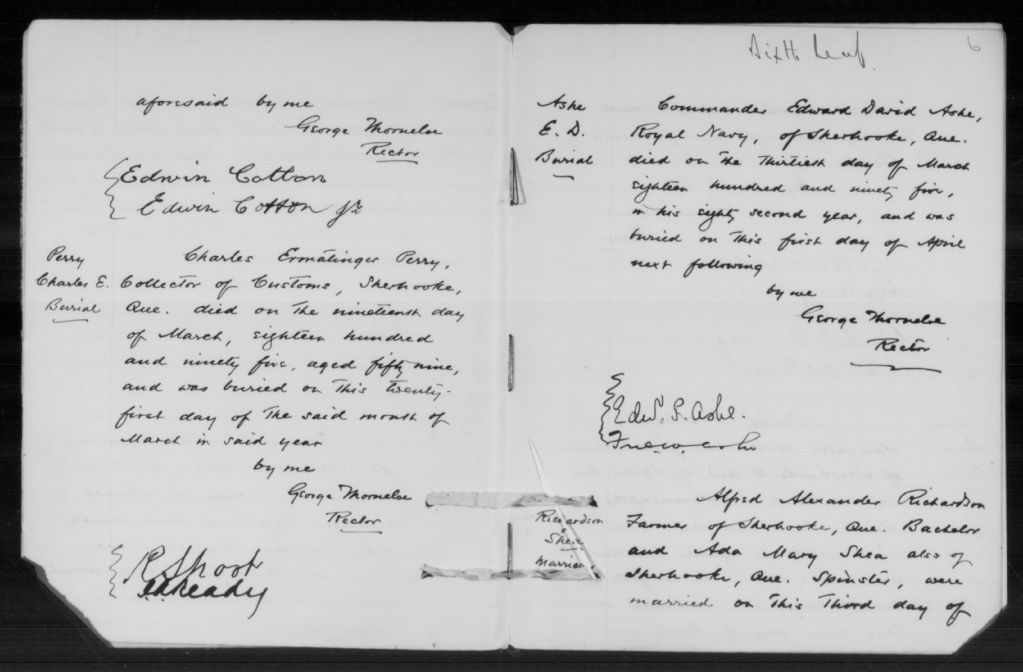 aforesaid by me
George Thorneloe
Rector
Edwin Cotton
Edwin Cotton Jr
Perry
Charles E.
Burial
Charles Ermatinger Perry,
Collector of Customs, Sherbrooke,
Que. died on the nineteenth day
of March, eighteen hundred
and ninety five, aged fifty nine,
and was buried on this twenty-
first day of the said month of
March in said year
by me
George Thorneloe
Rector
R Short
6
Sixth Leaf.
Ashe
E. D.
Burial
Commander Edward David Ashe,
Royal Navy, of Sherbrooke, Que.
died on the Thirtieth day of March
eighteen hundred and ninety five,
in his eighty second year, and was
buried on this first day of April
next following
by me
George Thorneloe
Rector
Edwd. Ashe.
Richardson
Shea
Marriage
Alfred Alexander Richardson
Farmer of Sherbrooke, Que. Bachelor
and Ada Mary Shea also of
Sherbrooke, Que. Spinster, were
married on this Third day of